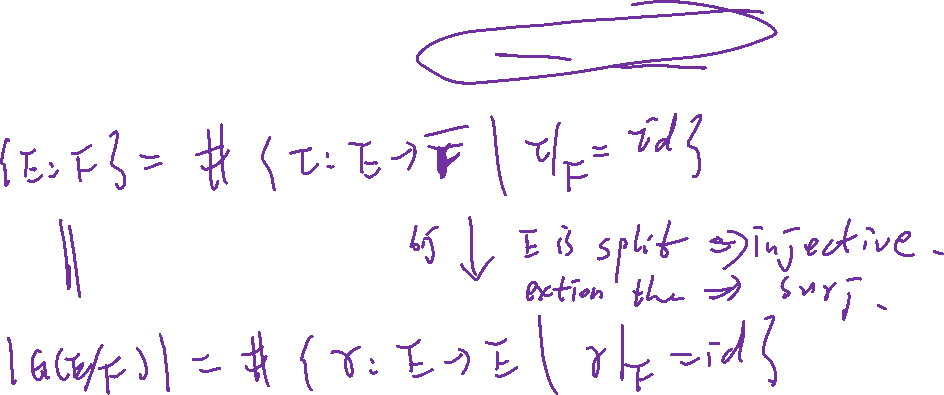 {E:F} = # {τ: E → F̅ | τ|_F = id}
|| bij ↓ E is split ⇒ injective.
extion the ⇒ surj.
|G(E/F)| = # {γ: E → E | γ|_F = id}